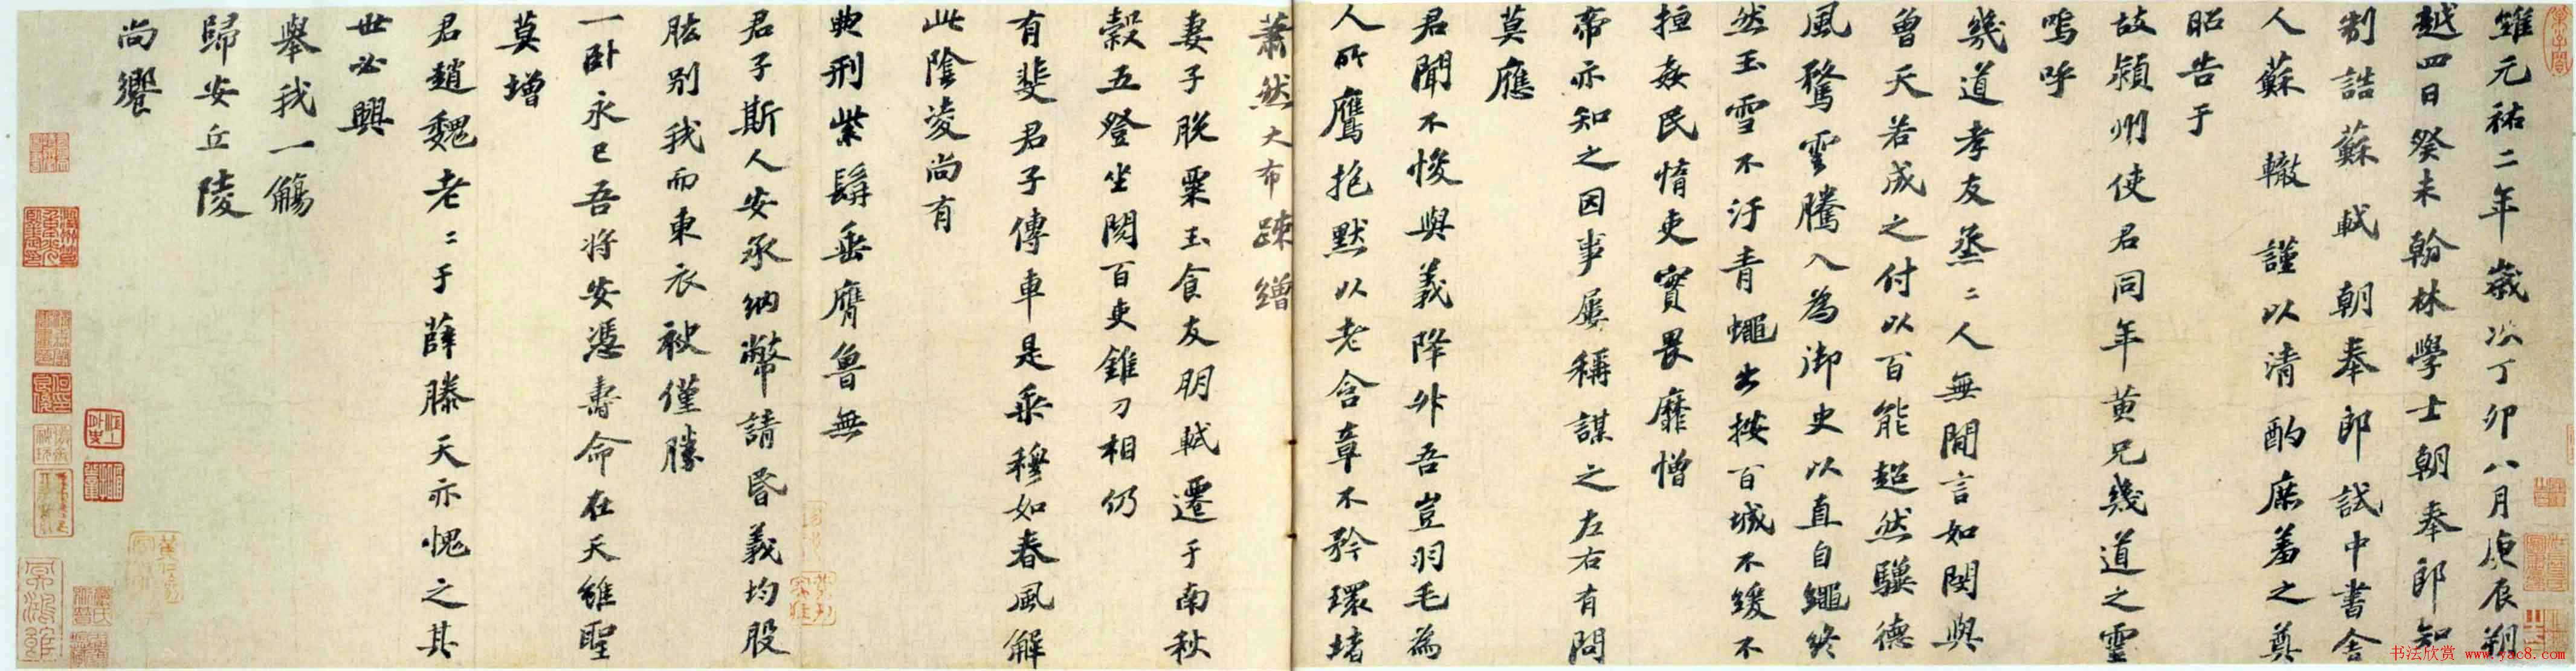 維元祐二年歲次丁卯八月庚辰朔
越四日癸未翰林學士朝奉郎知
制誥蘇軾朝奉郎試中書舍
人蘇轍謹以清酌庶羞之奠
昭告于
故潁州使君同年黄兄幾道之靈
嗚呼
幾道孝友烝〻人無閒言如閔與
曾天若成之付以百能超然驥德
風騖雲騰入為御史以直自繩終
然玉雪不汙青蠅出按百城不緩不
搄姦民惰吏實畏靡憎
帝亦知之因事屢稱謀之左右有問
莫應
君聞不悛與義降升吾豈羽毛為
人所鷹抱默以老含章不矜環堵
蕭然大布疎繒
妻子脱粟玉食友朋軾遷于南秋
穀五登坐閱百吏錐刀相仍
有斐君子傳車是乘穆如春風解
此陰凌尚有
典刑紫髯垂膺魯無
君子斯人安承納幣請昏義均股
肱别我而東衣袂僅勝
一卧永已吾将安憑壽命在天雖聖
莫增
君趙魏老〻于薛滕天亦愧之其
世必興
舉我一觴
歸安丘陵
尚饗
书法欣赏 www.yac8.com